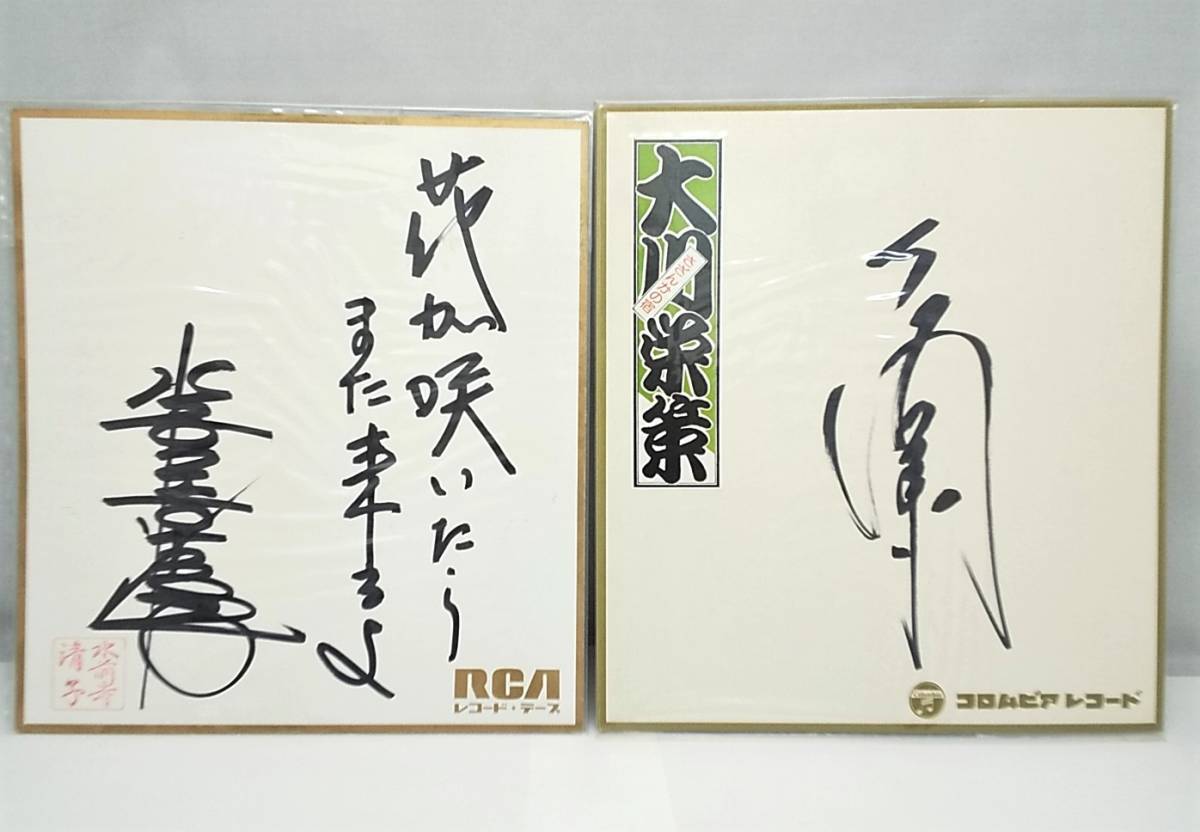 花が咲いたら
また来るよ
水前寺
清子
RCA
レコード・テープ
大川栄策
さざんかの宿
コロムビアレコード